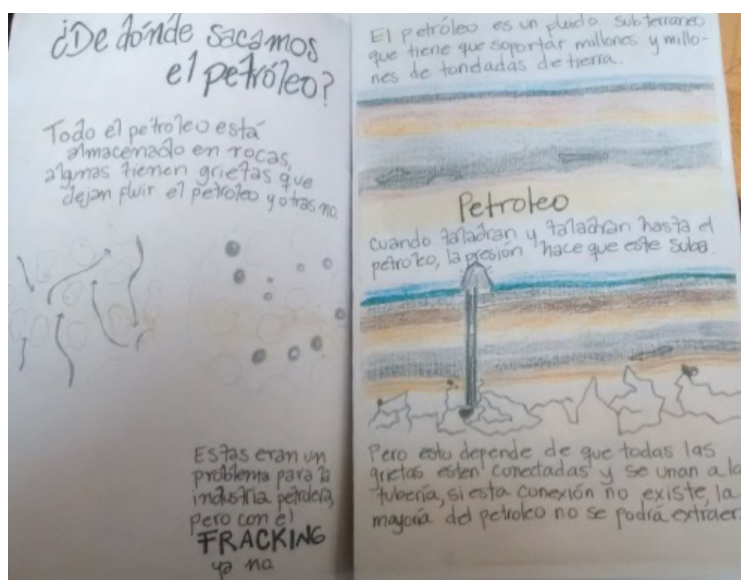 ¿De dónde sacamos
el petróleo?
Todo el petroleo está
almacenado en rocas,
algunas tienen grietas que
dejan fluir el petroleo y otras no.
Estas eran un
problema para la
industria petrolera,
pero con el
FRACKING
ya no
El petróleo es un fluido subterraneo
que tiene que soportar millones y millo-
nes de tondadas de tierra.
Petroleo
cuando taladran y taladran hasta el
petroleo, la presión hace que este suba.
Pero esto depende de que todas las
grietas esten conectadas y se unan a la
tubería, si esta conexión no existe, la
mayoría del petroleo no se podrá extraer.